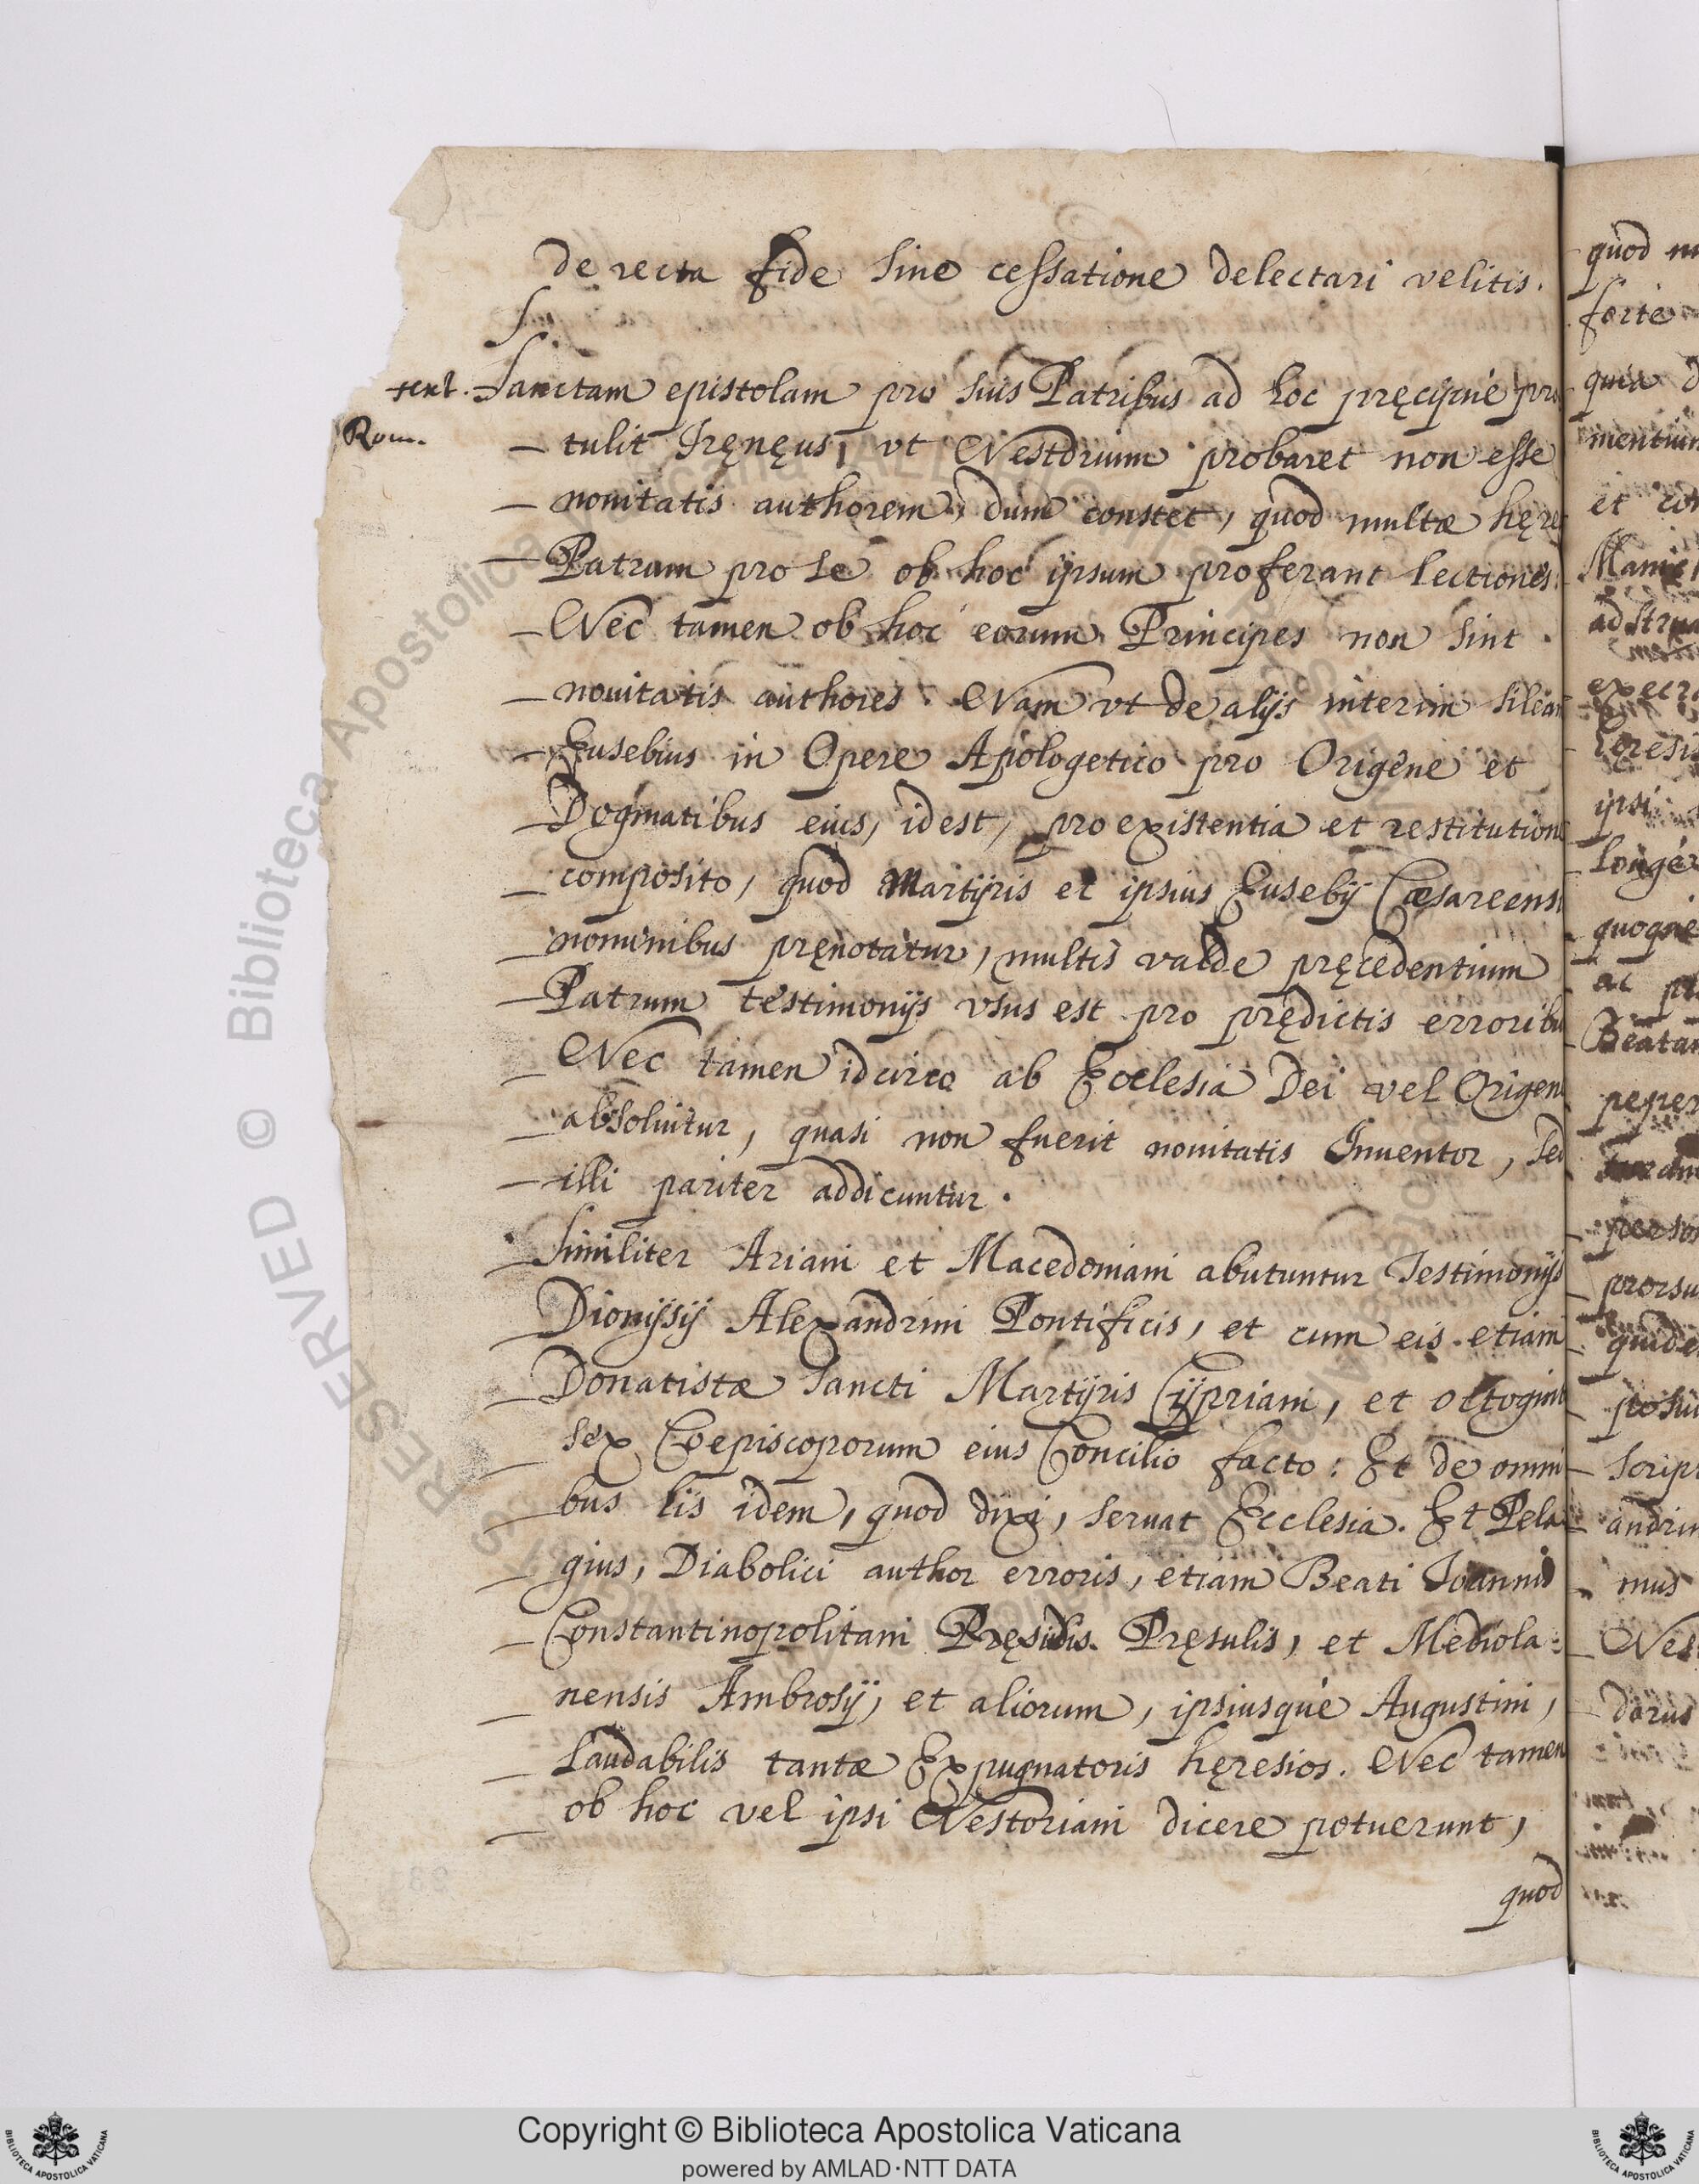 de recta fide sine cessatione delectari velitis.
S.
text. Sanctam epistolam pro suis Patribus ad hoc pręcipué pro
Rom. tulit Iręnęus, vt Nestorium probaret non esse
nouitatis authorem, dum constet, quod multæ hęre
Patrum pro se ob hoc ipsum proferant lectiones.
Nec tamen ob hoc eorum Principes non sint
nouitatis authores. Nam vt de alijs interim silea
Eusebius in Opere Apologetico pro Origene et
Dogmatibus eius, idest, pro existentia et restitution
composito, quod Martyris et ipsius Eusebij Cæsareensi
nominibus pręnotatur, multis valde pręcedentium
Patrum testimonijs vsus est pro prędictis erroribu
Nec tamen idcirco ab Ecclesia Dei vel Origen
absoluitur, quasi non fuerit nouitatis Inuentor, sed
illi pariter addicuntur.
Similiter Ariani et Macedoniani abutuntur Testimonijs
Dionysij Alexandrini Pontificis, et cum eis etiam
Donatistæ Sancti Martyris Cypriani, et octogint
sex Coepiscoporum eius Concilio facto: Et de omni
bus his idem, quod dixi, seruat Ecclesia. Et Pela
gius, Diabolici author erroris, etiam Beati Ioannis
Constantinopolitani Pręsidis. Pręsulis, et Mediola-
nensis Ambrosij, et aliorum, ipsiusqué Augustini,
laudabilis tantæ Expugnatoris hęresios. Nec tamen
ob hoc vel ipsi Nestoriani dicere potuerunt,
quod
quod
forte
quia
mentium
et
adstrua
execra
hęresi
ipsi
longé
quoque
ac
Beatam
peper
prorsu
quide
posui
script
andrin
mus
Nest
dorus
© Biblioteca Apostolica Vaticana
RESERVED
Copyright © Biblioteca Apostolica Vaticana
powered by AMLAD·NTT DATA
BIBLIOTECA APOSTOLICA VATICANA
BIBLIOTECA APOSTOLICA VATICANA